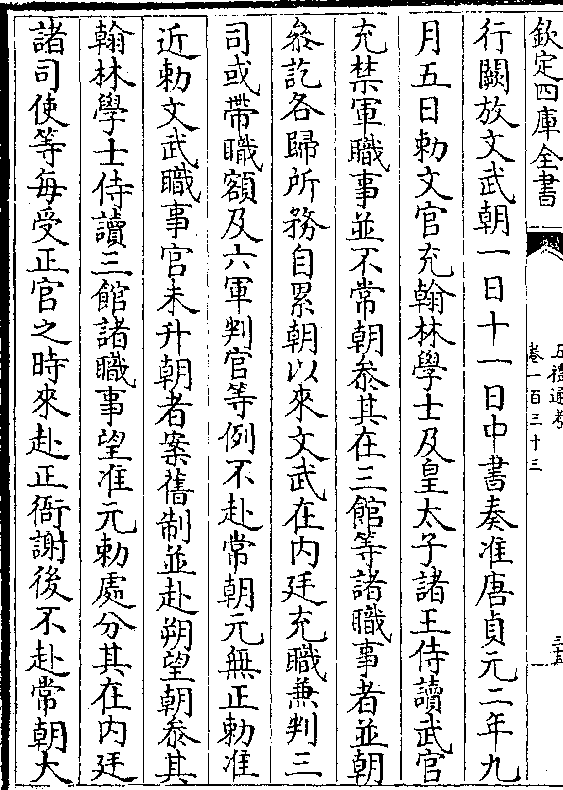 欽定四庫全書
五禮通考
卷一百三十三
三五
行闕放文武朝一日十一日中書奏准唐貞元二年九
月五日勅文官充翰林學士及皇太子諸王侍讀武官
充禁軍職事並不常朝叅其在三館等諸職事者並朝
叅訖各歸所務自累朝以來文武在内廷充職兼判三
司或帶職額及六軍判官等例不赴常朝元無正勅准
近勅文武職事官未升朝者案舊制並赴朔望朝叅其
翰林學士侍讀三館諸職事望准元勅處分其在内廷
諸司使等每受正官之時來赴正衙謝後不赴常朝大